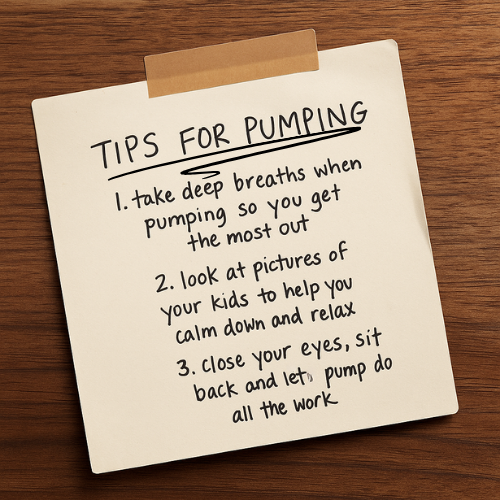 TIPS FOR PUMPING
1. take deep breaths when
pumping so you get
the most out
2. look at pictures of
your kids to help you
calm down and relax
3. close your eyes, sit
back and let pump do
all the work